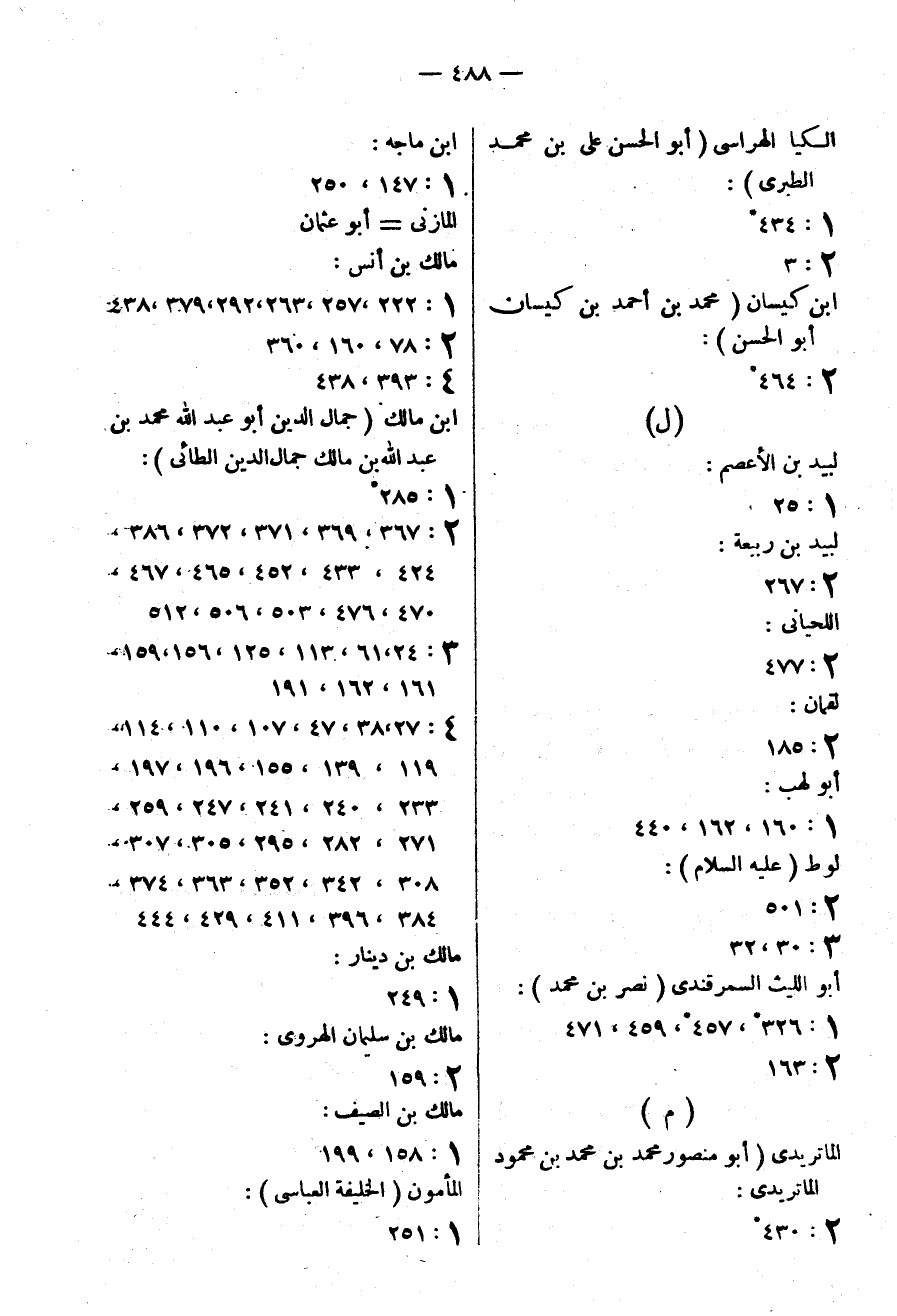 — ٤٨٨ —
الكيا الهراسى ( أبو الحسن على بن محمد
الطبرى ) :
١ : ٤٣٤*
٢ : ٣
ابن كيسان ( محمد بن أحمد بن كيسان
أبو الحسن ) :
٢ : ٤٦٤*
(ل)
لبيد بن الأعصم :
١ : ٢٥
لبيد بن ربيعة :
٢ : ٢٦٧
اللحيانى :
٢ : ٤٧٧
لقمان :
٢ : ١٨٥
أبو لهب :
١ : ١٦٠ ، ١٦٢ ، ٤٤٠
لوط ( عليه السلام ) :
٢ : ٥٠١
٣ : ٣٠ ، ٣٢
أبو الليث السمرقندى ( نصر بن محمد ) :
١ : ٣٢٦* ، ٤٥٧* ، ٤٥٩ ، ٤٧١
٢ : ١٦٣
( م )
الماتريدى ( أبو منصور محمد بن محمد بن محمود
الماتريدى :
٢ : ٤٣٠*
ابن ماجه :
١ : ١٤٧ ، ٢٥٠
المازنى = أبو عثمان
مالك بن أنس :
١ : ٢٢٢ ، ٢٥٧ ، ٢٦٣ ، ٢٩٢ ، ٣٧٩ ، ٤٣٨
٢ : ٧٨ ، ١٦٠ ، ٣٦٠
٤ : ٣٩٣ ، ٤٣٨
ابن مالك ( جمال الدين أبو عبد الله محمد بن
عبد الله بن مالك جمال الدين الطائى ) :
١ : ٢٨٥*
٢ : ٣٦٧ ، ٣٦٩ ، ٣٧١ ، ٣٧٢ ، ٣٨٦ ،
٤٢٤ ، ٤٣٣ ، ٤٥٢ ، ٤٦٥ ، ٤٦٧ ،
٤٧٠ ، ٤٧٦ ، ٥٠٣ ، ٥٠٦ ، ٥١٢
٣ : ٢٤ ، ٦١ ، ١١٣ ، ١٢٥ ، ١٥٦ ، ١٥٩ ،
١٦١ ، ١٦٢ ، ١٩١
٤ : ٢٧ ، ٣٨ ، ٤٧ ، ١٠٧ ، ١١٠ ، ١١٤ ،
١١٩ ، ١٣٩ ، ١٥٥ ، ١٩٦ ، ١٩٧ ،
٢٣٣ ، ٢٤٠ ، ٢٤١ ، ٢٤٧ ، ٢٥٩ ،
٢٧١ ، ٢٨٢ ، ٢٩٥ ، ٣٠٥ ، ٣٠٧ ،
٣٠٨ ، ٣٤٢ ، ٣٥٢ ، ٣٦٣ ، ٣٧٤ ،
٣٨٤ ، ٣٩٦ ، ٤١١ ، ٤٢٩ ، ٤٤٤
مالك بن دينار :
١ : ٢٤٩
مالك بن سليمان الهروى :
٢ : ١٥٩
مالك بن الصيف :
١ : ١٥٨ ، ١٩٩
المأمون ( الخليفة العباسى ) :
١ : ٢٥١